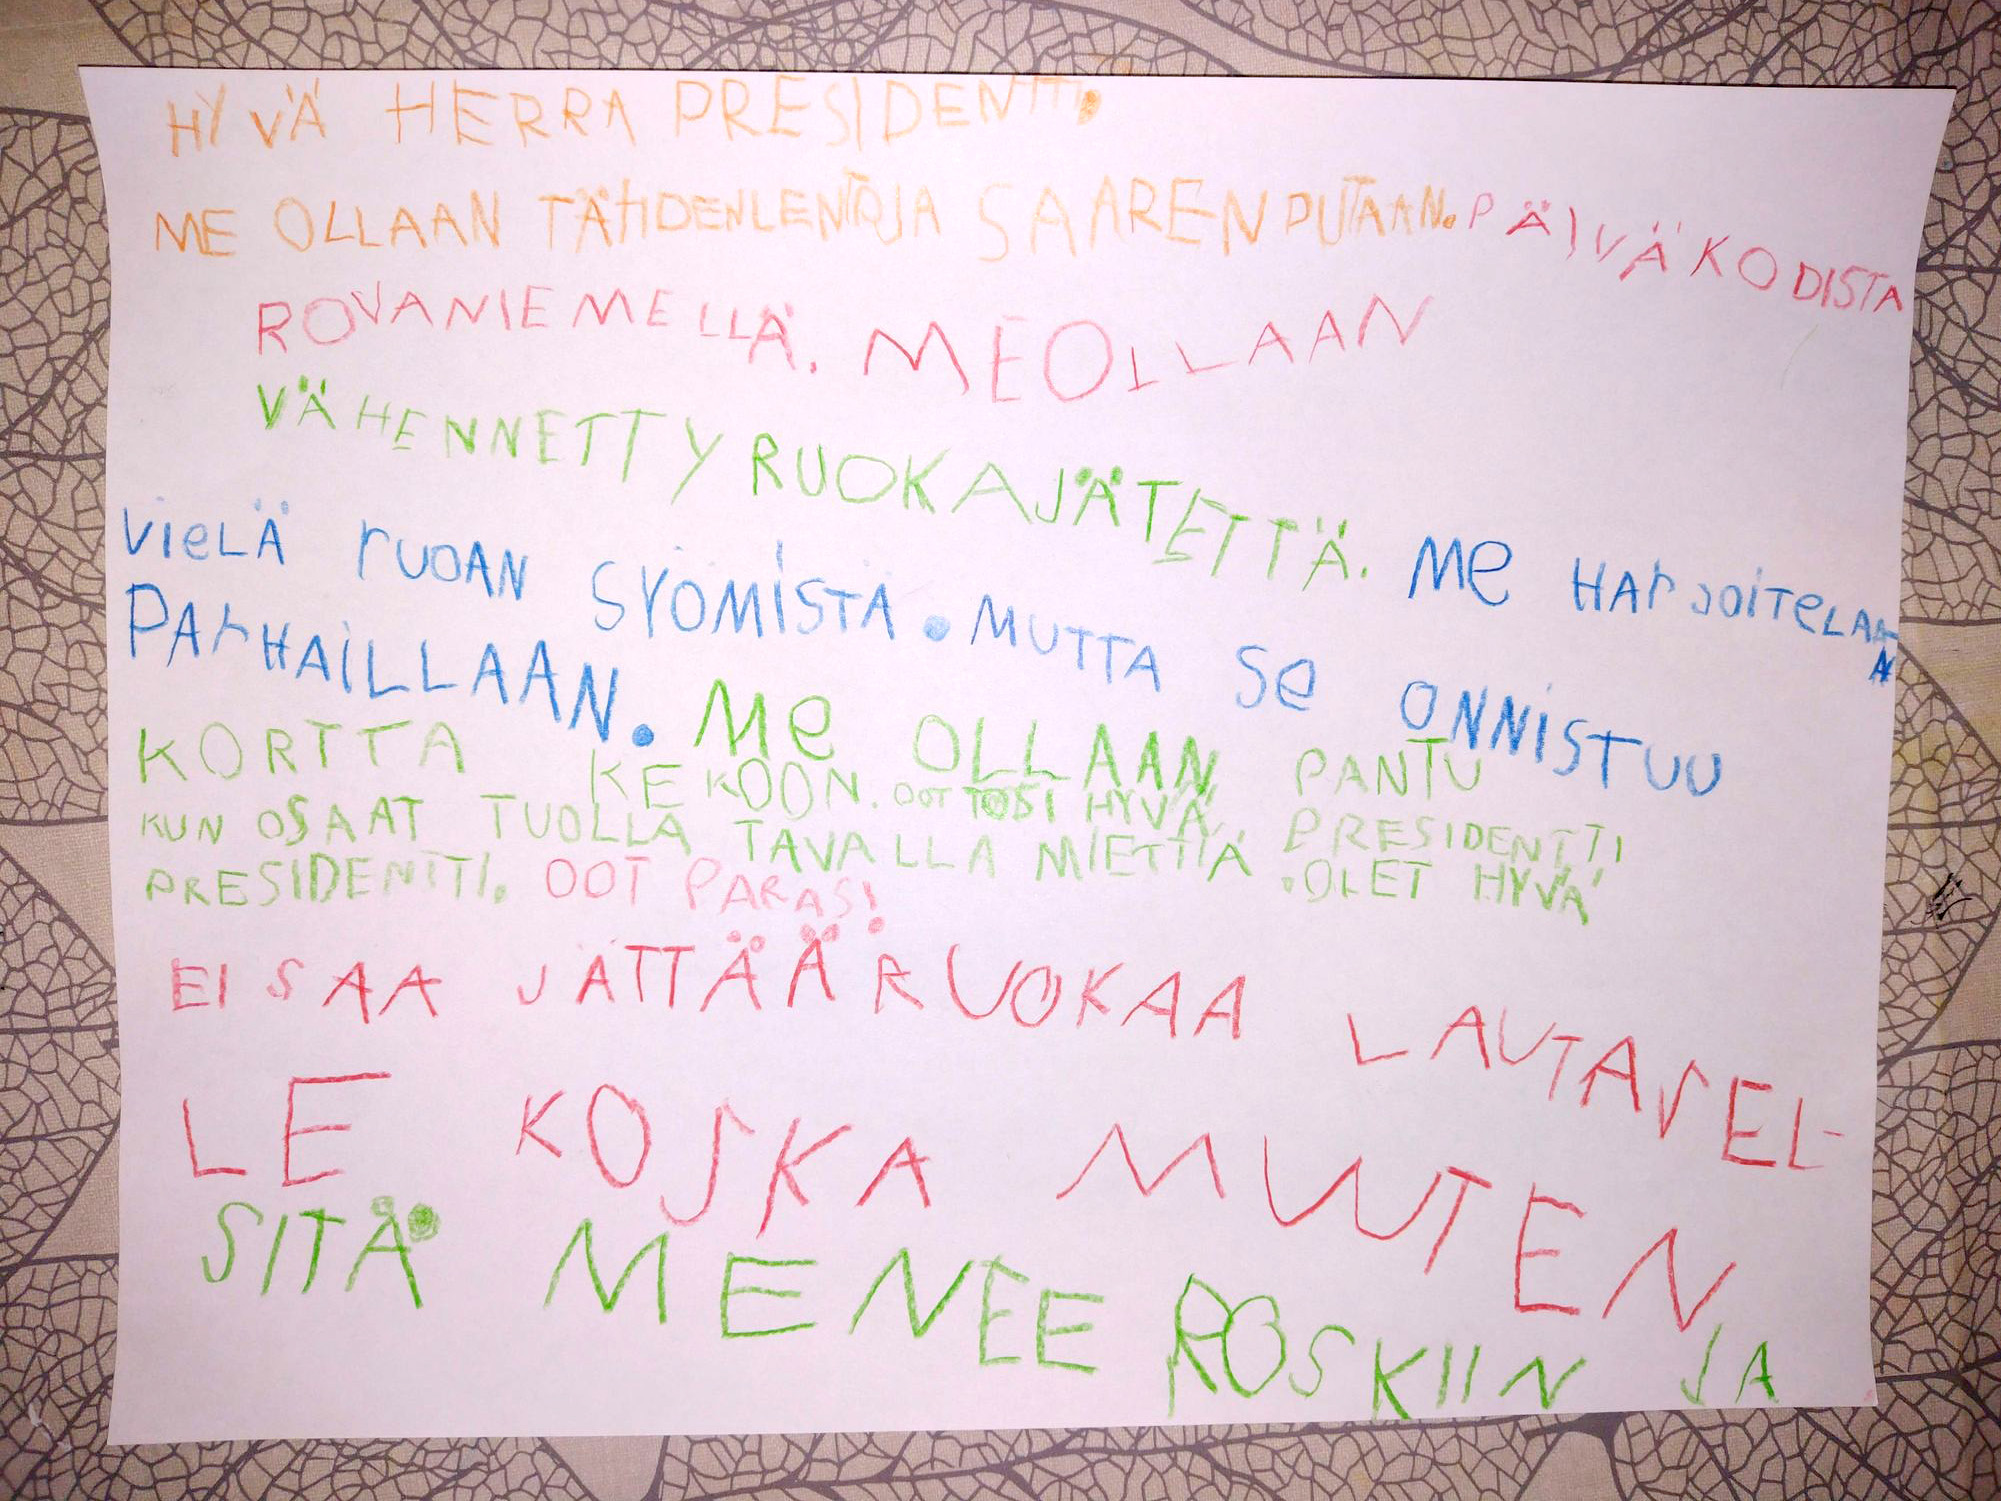 HYVÄ HERRA PRESIDENTTI.
ME OLLAAN TÄHDENLENTOJA SAARENPUTAAN. PÄIVÄKODISTA
ROVANIEMELLÄ. ME OLLAAN
VÄHENNETTY RUOKAJÄTETTÄ. Me HArJOITeLAAN
VieLÄ rUOAN SYÖMISTÄ. MUTTA Se ONNISTUU
PArHAILLAAN. Me OLLAAN PANTU
KORTTA KEKOON. OOT TOSI HYVÄ PRESIDENTTI
KUN OSAAT TUOLLA TAVALLA MIETTIÄ. OLET HYVÄ
PRESIDENTTI. OOT PARAS!
EI SAA JÄTTÄÄ RUOKAA LAUTASEL-
LE KOSKA MUUTEN
SITÄ MENEE ROSKIIN JA